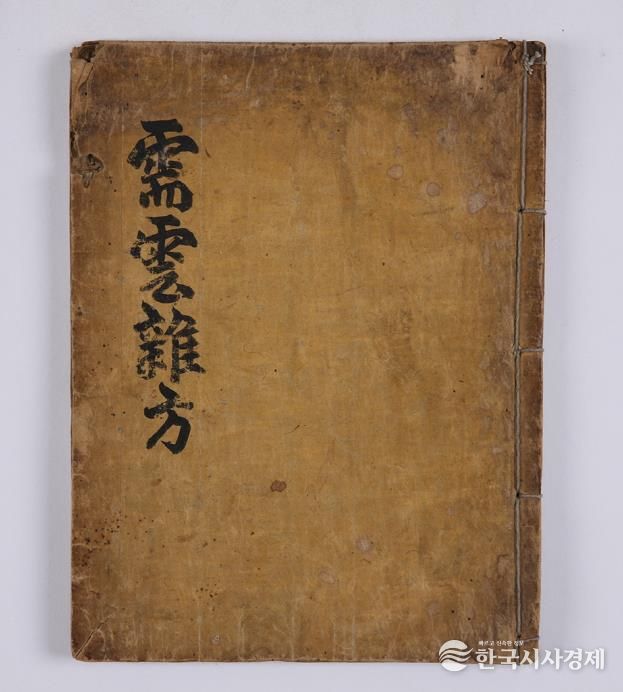 需雲雜方
빠르고 신속한 정보
한국시사경제